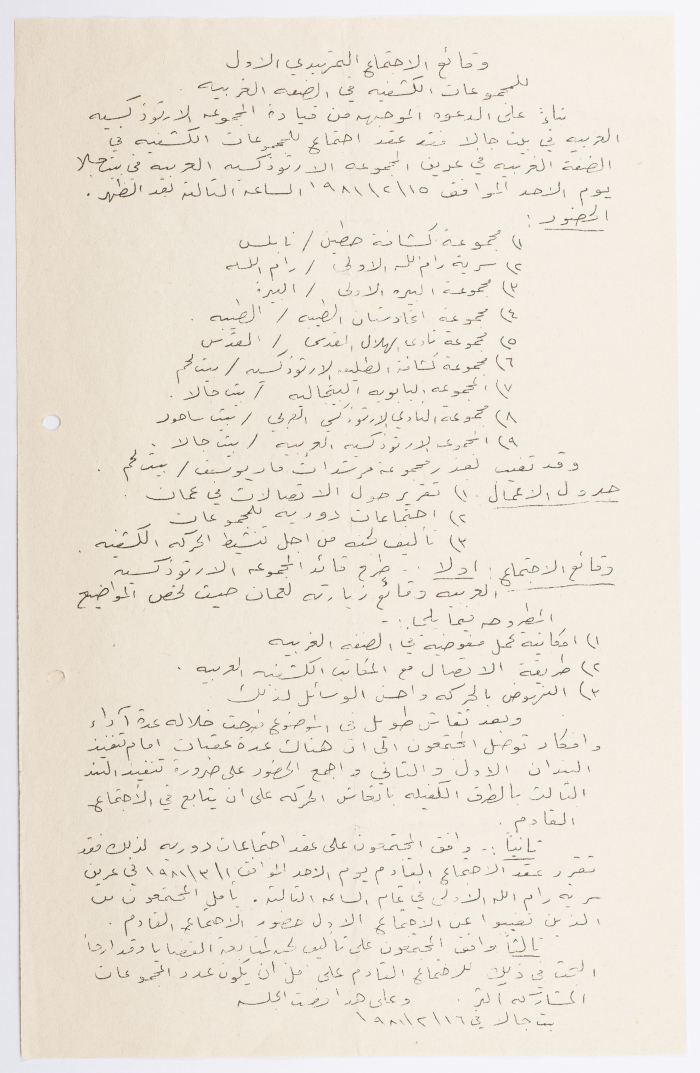 وقائع الاجتماع التمهيدي الاول
للمجموعات الكشفيه في الضفه الغربيه
بناءً على الدعوه الموجهه من قيادة المجموعه الارثوذكسيه
العربيه في بيت جالا فقد عقد اجتماع للمجموعات الكشفيه في
الضفة الغربيه في عرين المجموعه الارثوذكسيه العربيه في بيت جالا
يوم الاحد الموافق ١٩٨١/٢/١٥ الساعة الثالثه بعد الظهر .
الحضور :
١) مجموعة كشافة حطين / نابلس
٢) سرية رام الله الاولى / رام الله
٣) مجموعة البيره الاولى / البيرة
٤) مجموعة الطيبه / الطيبه .
٥) مجموعة نادي الهلال المقدسي / القدس
٦) مجموعة كشافة الطليعه الارثوذكسيه / بيت لحم
٧) المجموعه البابويه / بيت جالا .
٨) مجموعة النادي الارثوذكسي العربي / بيت ساحور
٩) المجموعه الارثوذكسيه العربيه / بيت جالا .
وقد تغيب بعذر مجموعة مرشدات مار يوسف / بيت لحم .
جدول الاعمال . ١) تقرير حول الاتصالات في عمان .
٢) اجتماعات دوريه للمجموعات
٣) تأليف لجنه من اجل تنشيط الحركه الكشفيه .
وقائع الاجتماع : اولا .. طرح قائد المجموعه الارثوذكسيه
العربيه وقائع زيارته لعمان حيث لخص المواضيع
المطروحه فيما يلي :-
١) امكانية عمل مفوضيه في الضفه الغربيه
٢) طريقة الاتصال مع المكاتب الكشفيه العربيه .
٣) النهوض بالحركه واحسن الوسائل لذلك
وبعد نقاش طويل في الموضوع طرحت خلاله عدة آراء
وافكار توصل المجتمعون الى ان هناك عدة عقبات امام تنفيذ
البندان الاول والثاني واجمع الحضور على ضرورة تنفيذ البند
الثالث بالطرق الكفيله بانعاش الحركه على ان يتابع في الاجتماع
القادم .
ثانيا :- وافق المجتمعون على عقد اجتماعات دوريه لذلك فقد
تقرر عقد الاجتماع القادم يوم الاحد الموافق ١٩٨١/٣/١ في عرين
سرية رام الله الاولى في تمام الساعه الثالثه . يأمل المجتمعون من
الذين تغيبوا عن الاجتماع الاول حضور الاجتماع القادم .
ثالثا وافق المجتمعون على تأليف لجنه لمتابعة القضايا وقد ارجأ
البحث في ذلك للاجتماع القادم على امل ان يكون عدد المجموعات
المشاركه اكثر . وعلى هذا رفعت الجلسه
بيت جالا في ١٩٨١/٢/١٦